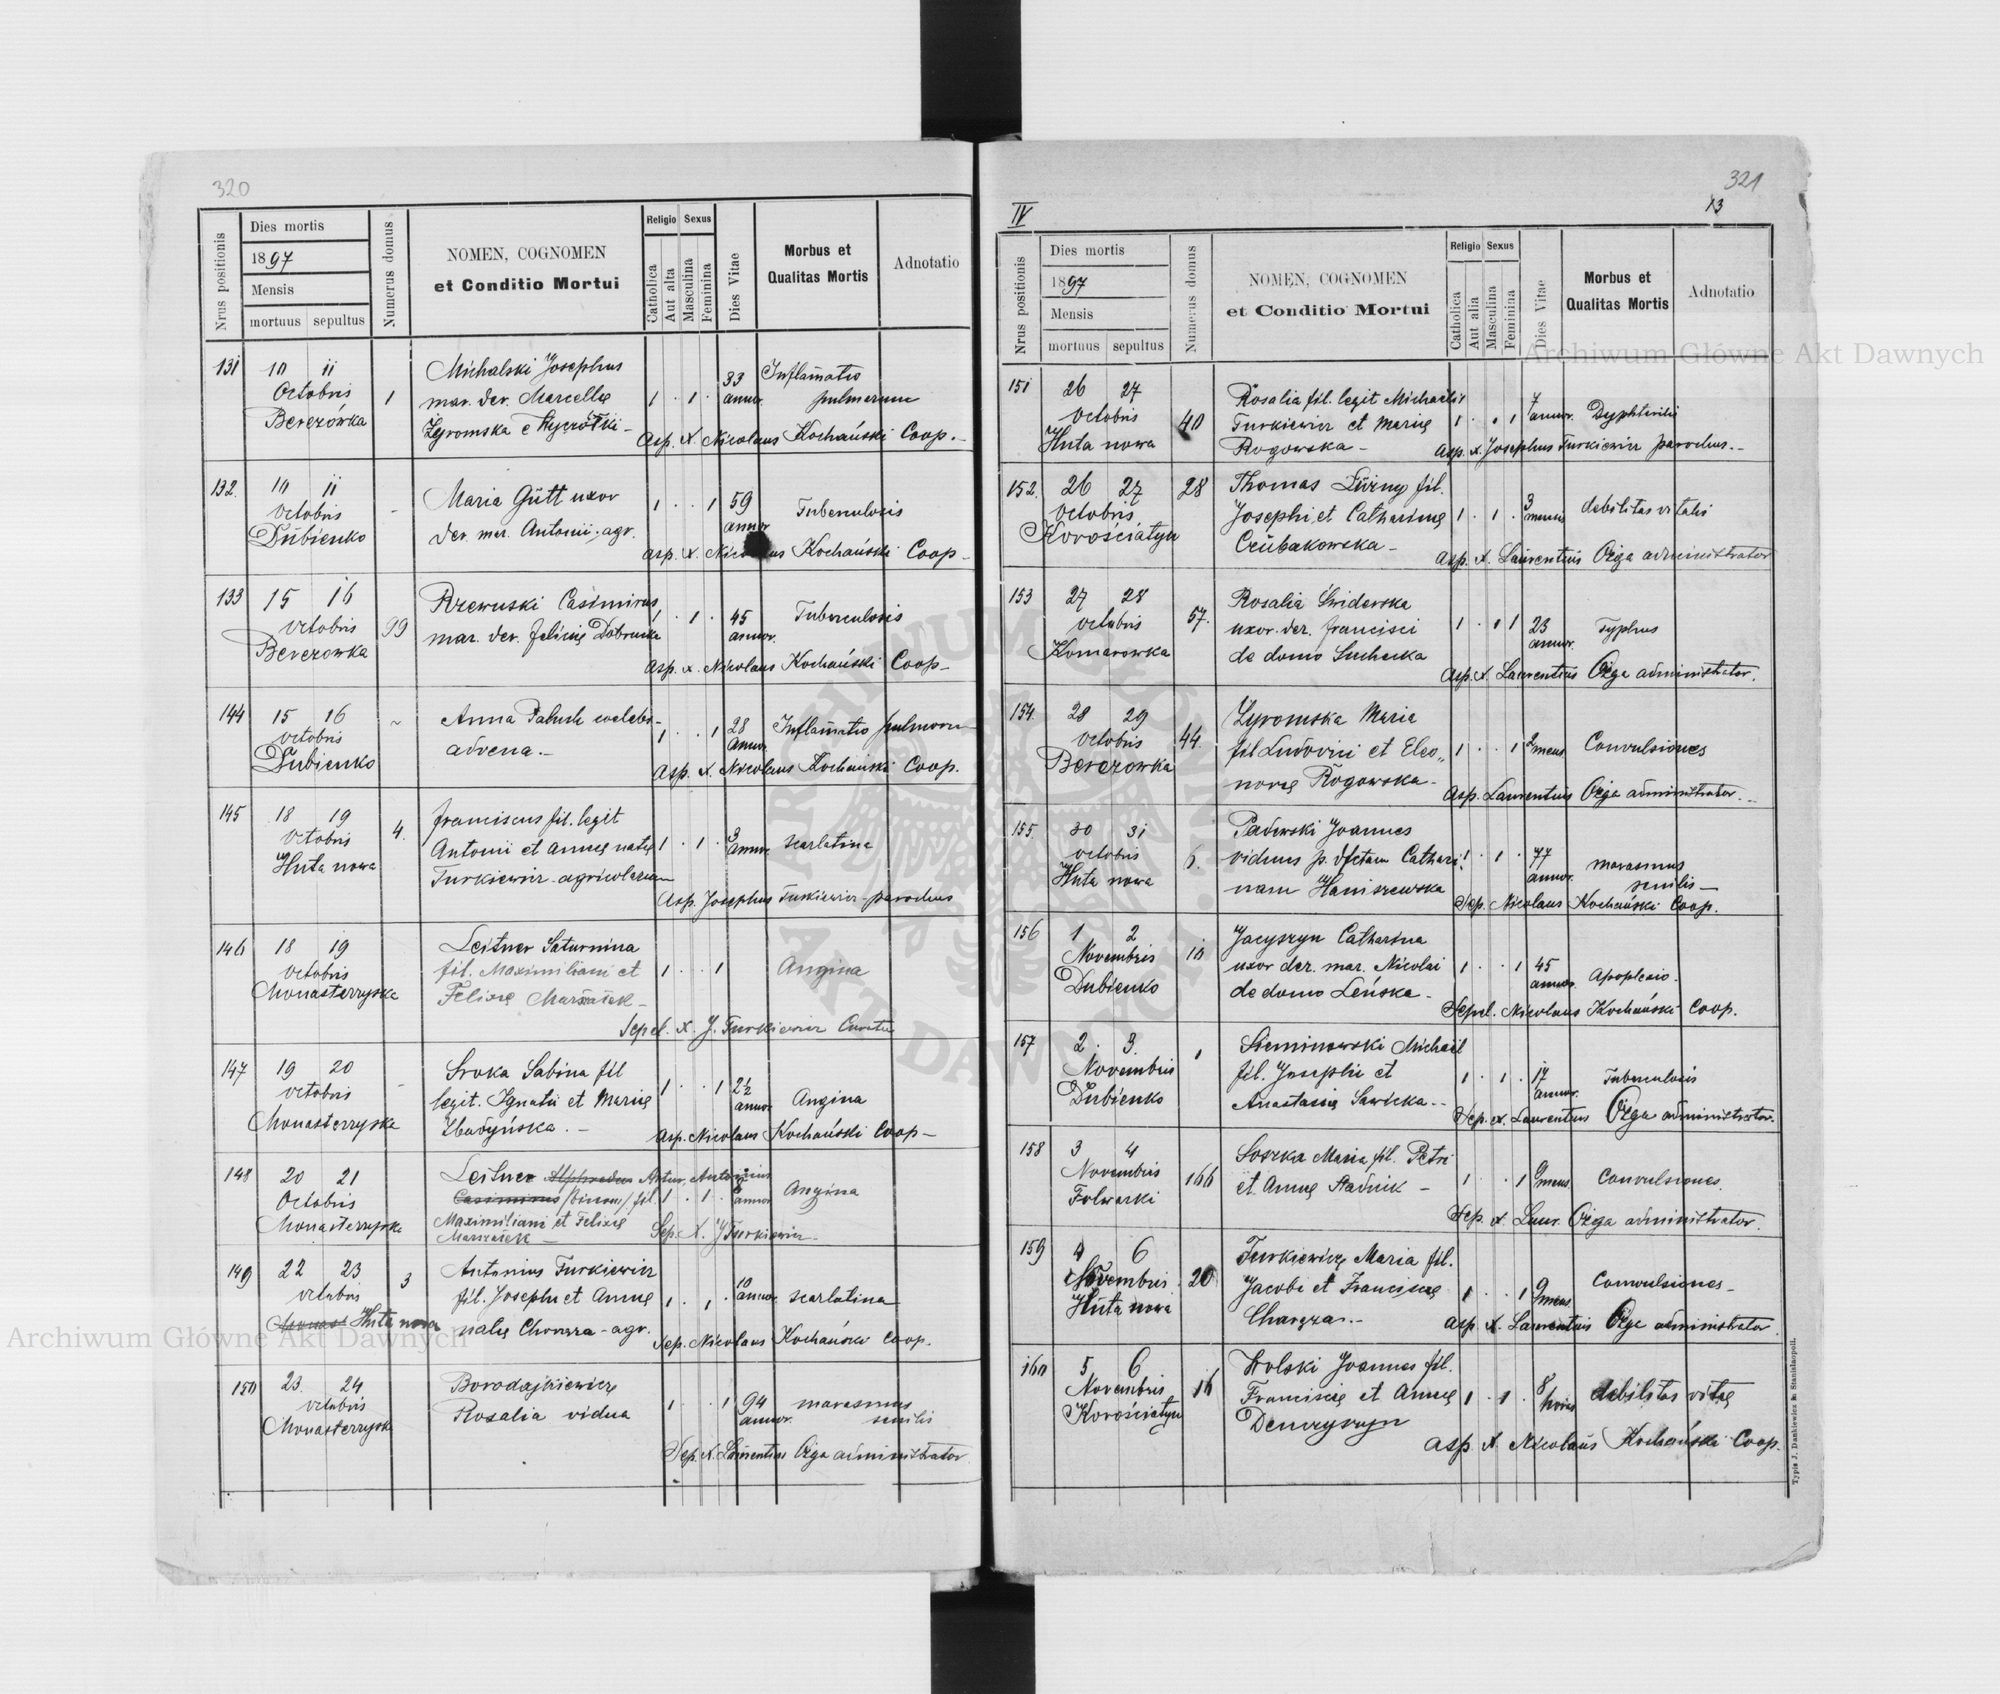 320
Nrus positionis
Dies mortis
1897
Mensis
mortuus sepultus
Numerus domus
NOMEN, COGNOMEN
et Conditio Mortui
Religio Sexus
Catholica
Aut alta
Masculina
Feminina
Dies Vitae
Morbus et
Qualitas Mortis
Adnotatio
131 10 11 Michalski Josephus
Octobris 1 mar. der. Marcellę 1 . 1 . 33 annor. Inflam̄atio pulmorum
Berezówka Żyromska e
Asp. X. Nicolaus Kochański Coop. -
132. 10 11 Maria Gütt uxor
octobris - der. mar. Antonii. agr. 1 . . 1 59 annor Tuberculosis
Dubienko
Asp. X. Nicolaus Kochański Coop -
133 15 16 Rzewuski Casimirus
octobris 99 mar. der. Felicię Dobrucka 1 . 1 . 45 annor. Tuberculosis
Berezowka
Asp. X. Nicolaus Kochański Coop -
144 15 16 ~ Anna Paluch coelebs -
octobris advena. - 1 . . 1 28 annor. Inflam̄atio pulmorum
Dubienko
Asp. X. Nicolaus Kochański Coop.
145 18 19 4. Franciscus fil. legit
octobris Antonii et Annę natę 1 . 1 . 3 annor. scarlatina
Huta nowa Turkiewicz agricolarum
Asp. Josephus Turkiewicz - parochus
146 18 19 Leitner Saturnina
octobris fil. Maximiliani et 1 . . 1 Angina
Monasterzyska Felixę Marszałek -
Sepel. X. J. Turkiewicz
147 19 20 Sroka Sabina fil
octobris - legit. Ignatii et Marię 1 . . 1 2½ annor. Angina
Monasterzyska Zbadyńska. -
Asp. Nicolaus Kochański Coop -
148 20 21 Leitner Alphredus Artur, Antonius
Octobris Casimirus /binom/ fil. 1 . 1 . annor Angina
Monasterzyska Maximiliani et Felixę
Marszałek - Sep. X. J Turkiewicz -
149 22 23 3 Antonius Turkiewicz
octobris fil. Josephi et Annę 1 . 1 . 10 annor. scarlatina
Huta nowa natę - agr.
Sep. Nicolaus Kochański coop.
150 23. 24 Borodajkiewicz
octobris Rosalia vidua 1 . . 1 94 annor. marasmus senilis
Monasterzyska
Sep. X. Laurentius Ożga administrator
321
13
IV
Nrus positionis
Dies mortis
1897
Mensis
mortuus sepultus
Numerus domus
NOMEN, COGNOMEN
et Conditio Mortui
Religio Sexus
Catholica
Aut alia
Masculina
Feminina
Dies Vitae
Morbus et
Qualitas Mortis
Adnotatio
151 26 27 Rosalia fil. legit Michaelis
octobris 40 Turkiewicz et Marię 1 . . 1 7 annor. Dyphteritis
Huta nowa Rogowska -
Asp. X. Josephus Turkiewicz parochus. -
152. 26 27 28 Thomas Luzny fil.
octobris Josephi et Catharinę 1 . 1 . 3 mensis debilitas vitalis
Korościatyn Czubakowska -
Asp. X. Laurentius Ożga administrator
153 27 28 Rosalia Swiderska
octobris 57. uxor. der. Francisci 1 . . 1 1 23 annor. Typhus
Komarowka de domo Suchecka
Asp. X. Laurentius Ożga administrator.
154. 28 29 Zyromska Maria
octobris 44. fil Ludovici et Eleo„ 1 . . 1 2 mens. Convulsiones
Berezowka norę Rogowska -
Asp. Laurentius Ożga administrator. -
155. 30 31 Padewski Joannes
octobris 6. viduus p. dfctam Cathari 1 . 1 . 77 annor. marasmus senilis -
Huta nowa nam Haniszewska
Sep. Nicolaus Kochański Coop.
156 1 2 Jacyszyn Catharina
Novembris 10 uxor der. mar. Nicolai 1 . . 1 45 annor. Apoplexio.
Dubienko de domo Leńska -
Sepel. Nicolaus Kochański Coop.
157 2. 3. 1 Sieminowski Michael
Novembris fil. Josephi et 1 . 1 . 17 annor. Tuberculosis
Dubienko Anastasię Sawicka. -
Sep. X. Laurentius Ożga administrator.
158 3 4 Soszka Maria fil. Petri
Novembris 166 et Annę Stadnik - 1 . . 1 9 mens. Convulsiones.
Folwarki
Sep. X. Laur. Ożga administrator.
159 4 6 Turkiewicz Maria fil.
Novembris 20 Jacobi et Franciscę 1 . . 1 9 mens. Convulsiones -
Huta nowa
Asp. X. Laurentius Ożga administrator
160 5. 6 Wolski Joannes fil.
Novembris 16 Franciscię et Annę 1 . 1 . 8 horis debilitas vitę
Korościatyn
Asp. X. Nicolaus Kochański Coop.
Typis J. Dankiewicz in Stanislaopoli.
Archiwum Główne Akt Dawnych
Archiwum Główne Akt Dawnych